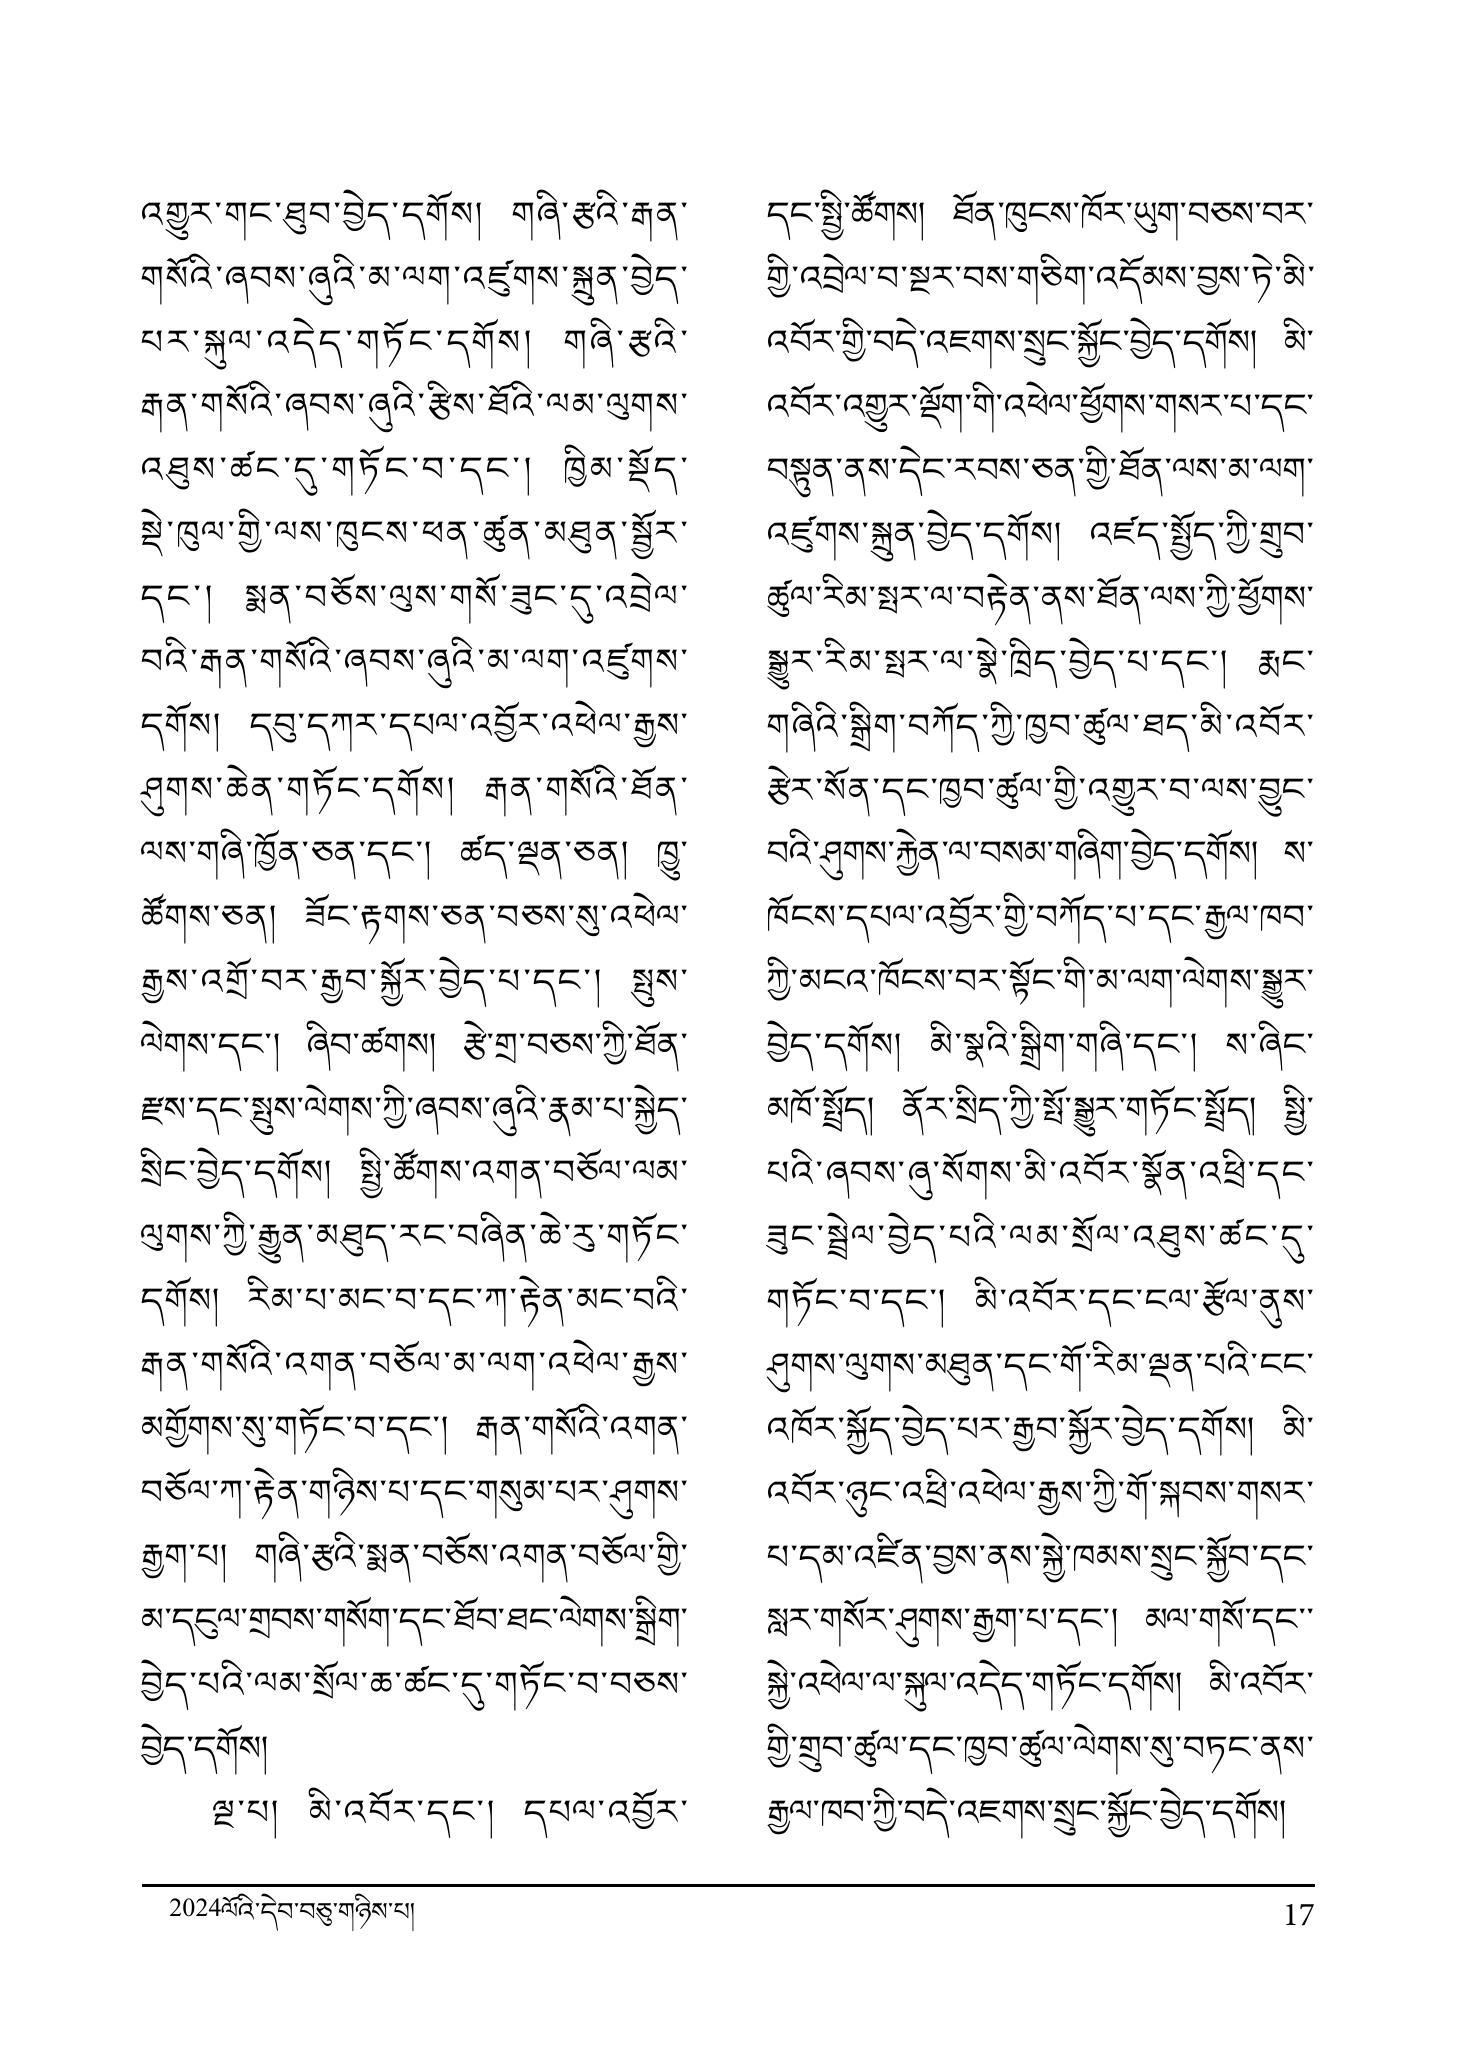 འགྱུར་གང་ཐུབ་བྱེད་དགོས། གཞི་རྩའི་རྒན་
གསོའི་ཞབས་ཞུའི་མ་ལག་འཛུགས་སྐྲུན་བྱེད་
པར་སྐུལ་འདེད་གཏོང་དགོས། གཞི་རྩའི་
རྒན་གསོའི་ཞབས་ཞུའི་རྩིས་ཐོའི་ལམ་ལུགས་
འཐུས་ཚང་དུ་གཏོང་བ་དང་། ཁྱིམ་སྡོད་
སྡེ་ཁུལ་གྱི་ལས་ཁུངས་ཕན་ཚུན་མཐུན་སྦྱོར་
དང་། སྨན་བཅོས་ལུས་གསོ་ཟུང་དུ་འབྲེལ་
བའི་རྒན་གསོའི་ཞབས་ཞུའི་མ་ལག་འཛུགས་
དགོས། དབུ་དཀར་དཔལ་འབྱོར་འཕེལ་རྒྱས་
ཤུགས་ཆེན་གཏོང་དགོས། རྒན་གསོའི་ཐོན་
ལས་གཞི་ཁྱོན་ཅན་དང་། ཚད་ལྡན་ཅན། ཁྱུ་
ཚོགས་ཅན། ཟོང་རྟགས་ཅན་བཅས་སུ་འཕེལ་
རྒྱས་འགྲོ་བར་རྒྱབ་སྐྱོར་བྱེད་པ་དང་། སྤུས་
ལེགས་དང་། ཞིབ་ཚགས། རྩེ་གྲ་བཅས་ཀྱི་ཐོན་
རྫས་དང་སྤུས་ལེགས་ཀྱི་ཞབས་ཞུའི་རྣམ་པ་སྐྱེད་
སྲིང་བྱེད་དགོས། སྤྱི་ཚོགས་འགན་བཅོལ་ལམ་
ལུགས་ཀྱི་རྒྱུན་མཐུད་རང་བཞིན་ཆེ་རུ་གཏོང་
དགོས། རིམ་པ་མང་བ་དང་ཀ་རྟེན་མང་བའི་
རྒན་གསོའི་འགན་བཅོལ་མ་ལག་འཕེལ་རྒྱས་
མགྱོགས་སུ་གཏོང་བ་དང་། རྒན་གསོའི་འགན་
བཅོལ་ཀ་རྟེན་གཉིས་པ་དང་གསུམ་པར་ཤུགས་
རྒྱག་པ། གཞི་རྩའི་སྨན་བཅོས་འགན་བཅོལ་གྱི་
མ་དངུལ་གྲབས་གསོག་དང་ཐོབ་ཐང་ལེགས་སྒྲིག་
བྱེད་པའི་ལམ་སྲོལ་ཆ་ཚང་དུ་གཏོང་བ་བཅས་
བྱེད་དགོས།
ལྔ་པ། མི་འབོར་དང་། དཔལ་འབྱོར་
དང་སྤྱི་ཚོགས། ཐོན་ཁུངས་ཁོར་ཡུག་བཅས་བར་
གྱི་འབྲེལ་བ་སྔར་བས་གཅིག་འདོམས་བྱས་ཏེ་མི་
འབོར་གྱི་བདེ་འཇགས་སྲུང་སྐྱོང་བྱེད་དགོས། མི་
འབོར་འགྱུར་ལྡོག་གི་འཕེལ་ཕྱོགས་གསར་པ་དང་
བསྟུན་ནས་དེང་རབས་ཅན་གྱི་ཐོན་ལས་མ་ལག་
འཛུགས་སྐྲུན་བྱེད་དགོས། འཛད་སྤྱོད་ཀྱི་གྲུབ་
ཚུལ་རིམ་སྤར་ལ་བརྟེན་ནས་ཐོན་ལས་ཀྱི་ཕྱོགས་
སྒྱུར་རིམ་སྤར་ལ་སྣེ་ཁྲིད་བྱེད་པ་དང་། རྨང་
གཞིའི་སྒྲིག་བཀོད་ཀྱི་ཁྱབ་ཚུལ་ཐད་མི་འབོར་
རྩེར་སོན་དང་ཁྱབ་ཚུལ་གྱི་འགྱུར་བ་ལས་བྱུང་
བའི་ཤུགས་རྐྱེན་ལ་བསམ་གཞིག་བྱེད་དགོས། ས་
ཁོངས་དཔལ་འབྱོར་གྱི་བཀོད་པ་དང་རྒྱལ་ཁབ་
ཀྱི་མངའ་ཁོངས་བར་སྟོང་གི་མ་ལག་ལེགས་སྒྱུར་
བྱེད་དགོས། མི་སྣའི་སྒྲིག་གཞི་དང་། ས་ཞིང་
མཁོ་སྤྲོད། ནོར་སྲིད་ཀྱི་སྤོ་སྒྱུར་གཏོང་སྤྲོད། སྤྱི་
པའི་ཞབས་ཞུ་སོགས་མི་འབོར་སྣོན་འཕྲི་དང་
ཟུང་སྦྲེལ་བྱེད་པའི་ལམ་སྲོལ་འཐུས་ཚང་དུ་
གཏོང་བ་དང་། མི་འབོར་དང་ངལ་རྩོལ་ནུས་
ཤུགས་ལུགས་མཐུན་དང་གོ་རིམ་ལྡན་པའི་ངང་
འཁོར་སྐྱོད་བྱེད་པར་རྒྱབ་སྐྱོར་བྱེད་དགོས། མི་
འབོར་ཉུང་འཕྲི་འཕེལ་རྒྱས་ཀྱི་གོ་སྐབས་གསར་
པ་དམ་འཛིན་བྱས་ནས་སྐྱེ་ཁམས་སྲུང་སྐྱོབ་དང་
སླར་གསོར་ཤུགས་རྒྱག་པ་དང་། མལ་གསོ་དང་་
སྐྱེ་འཕེལ་ལ་སྐུལ་འདེད་གཏོང་དགོས། མི་འབོར་
གྱི་གྲུབ་ཚུལ་དང་ཁྱབ་ཚུལ་ལེགས་སུ་བཏང་ནས་
རྒྱལ་ཁབ་ཀྱི་བདེ་འཇགས་སྲུང་སྐྱོང་བྱེད་དགོས།
2024ལོའི་དེབ་བཅུ་གཉིས་པ།
17